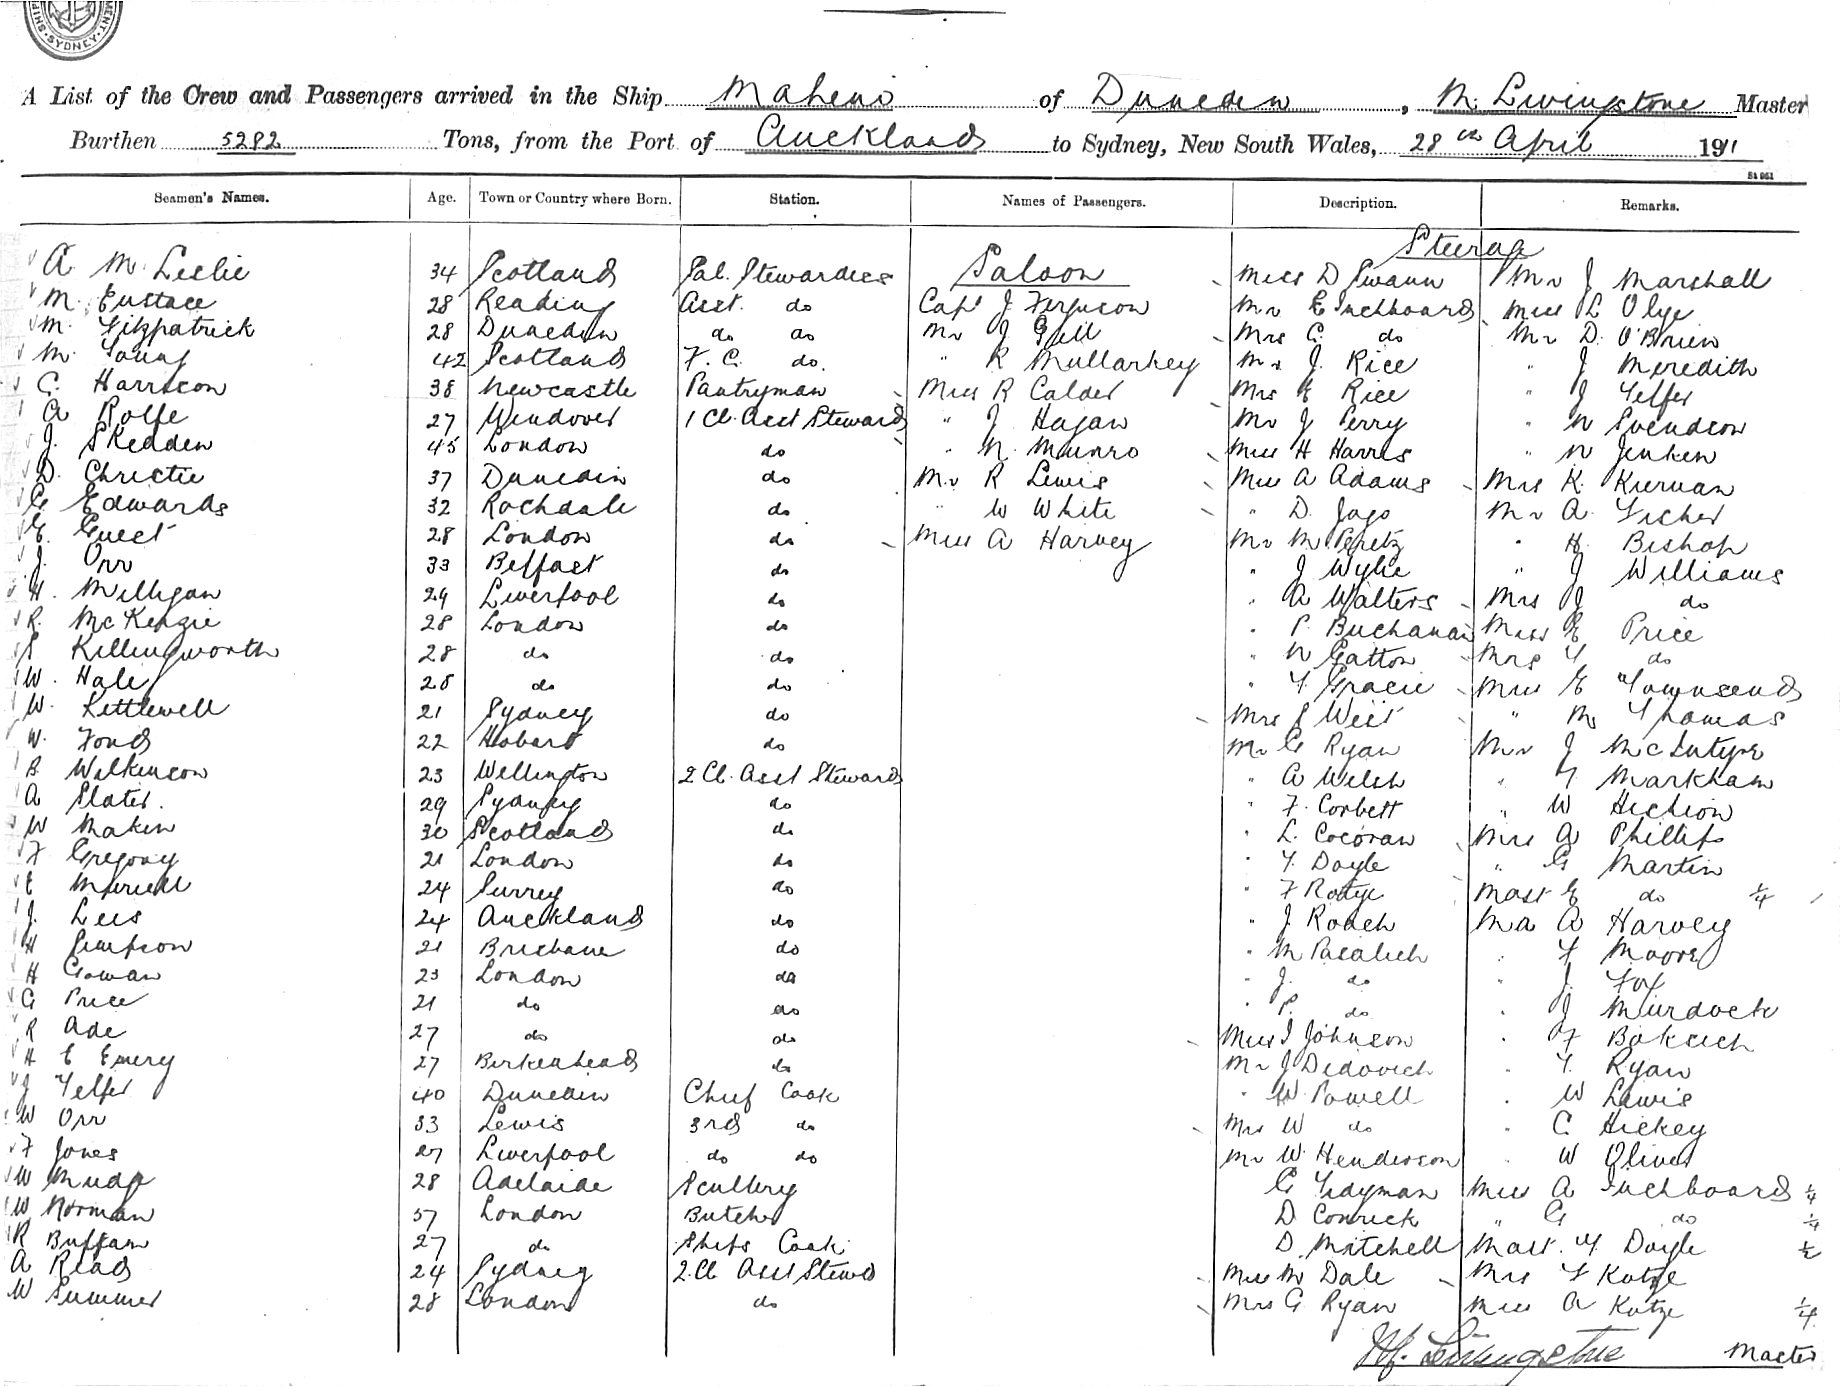 SYDNEY
A List of the Crew and Passengers arrived in the Ship Maheno of Dunedin, M. Livingstone Master
Burthen 5282 Tons, from the Port of Auckland to Sydney, New South Wales, 28th April 1911
Seamen's Names. Age. Town or Country where Born. Station. Names of Passengers. Description. Remarks.
Steerage
A M Leslie 34 Scotland Sal. Stewardess Saloon Miss D Swann Mr J Marshall
M. Eustace 28 Reading Asst. do Capt J Ferguson Mr E Inchboard Miss L Olge
M. Fitzpatrick 28 Dunedin do do Mr J Gill Mrs C. do Mr D. O'Brien
M. Young 42 Scotland F. C. do. " R Mullarkey Mr J. Rice " J Meredith
C. Harrison 38 Newcastle Pantryman Miss R Calder Mrs E Rice " J Telfer
A Rolfe 27 Windover 1 Cl. Asst Steward " J Hagan Mr J Perry " N Svendson
J. Skedden 45 London do " N. Munro Miss H Harris " N Jenken
D. Christie 37 Dunedin do Mr R Lewis Miss A Adams Mrs K. Kiernan
G Edwards 32 Rochdale do " W White " D. Jago Mr A Fisher
E. Guest 28 London do Miss A Harvey Mr M. Peretz " H. Bishop
J. Orr 33 Belfast do " J Wylie " J Williams
H. Milligan 29 Liverpool do " A Walters Mrs J do
R. McKenzie 28 London do " P. Buchanan Miss E Price
S Killingworth 28 do do " N Gatton Mrs F do
W. Hale 28 do do " F. Gracie Miss E Townsend
W. Kettlewell 21 Sydney do Mrs J West " M Thomas
W. Fond 22 Hobart do Mr G Ryan Mr J McIntyre
B. Wilkinson 23 Wellington 2 Cl. Asst Steward " A Welsh " F Markham
A Slater. 29 Sydney do " F. Corbett " W Hickion
W Makin 30 Scotland do " L. Cocoran Mrs A Phillips
F Gregory 21 London do " F. Doyle " G Martin
E Murrell 24 Surrey do " F Rodge Mast E do 1/4
J. Lees 24 Auckland do " J Roach Mr A Harvey
H Simpson 21 Brisbane do " M Pasalich " F Moore
H Gowan 23 London do " J. do " J. Fox
G Price 21 do do " P. do " J Murdoch
R Ade 27 do do Miss J Johnson " F Boksich
H E Emery 27 Birkenhead do Mr J Dedovich " F. Ryan
J Telfer 40 Dunedin Chief Cook " W. Powell " W Lewis
W Orr 33 Lewis 3rd do Mrs W do " C. Hickey
F Jones 27 Liverpool do do Mr W. Henderson " W Oliver
W Mudge 28 Adelaide Scullery G Tidyman Miss A Inchboard 1/4
W Norman 57 London Butcher D Conrick " G do 1/4
R Buffam 27 do Ships Cook D. Mitchell Mast. F Doyle 1/2
A Read 24 Sydney 2. Cl Asst Steward Miss M Dale Mrs F Kotze
W Summer 28 London do Mrs G Ryan Miss A Kotze 1/4
M. Livingstone Master